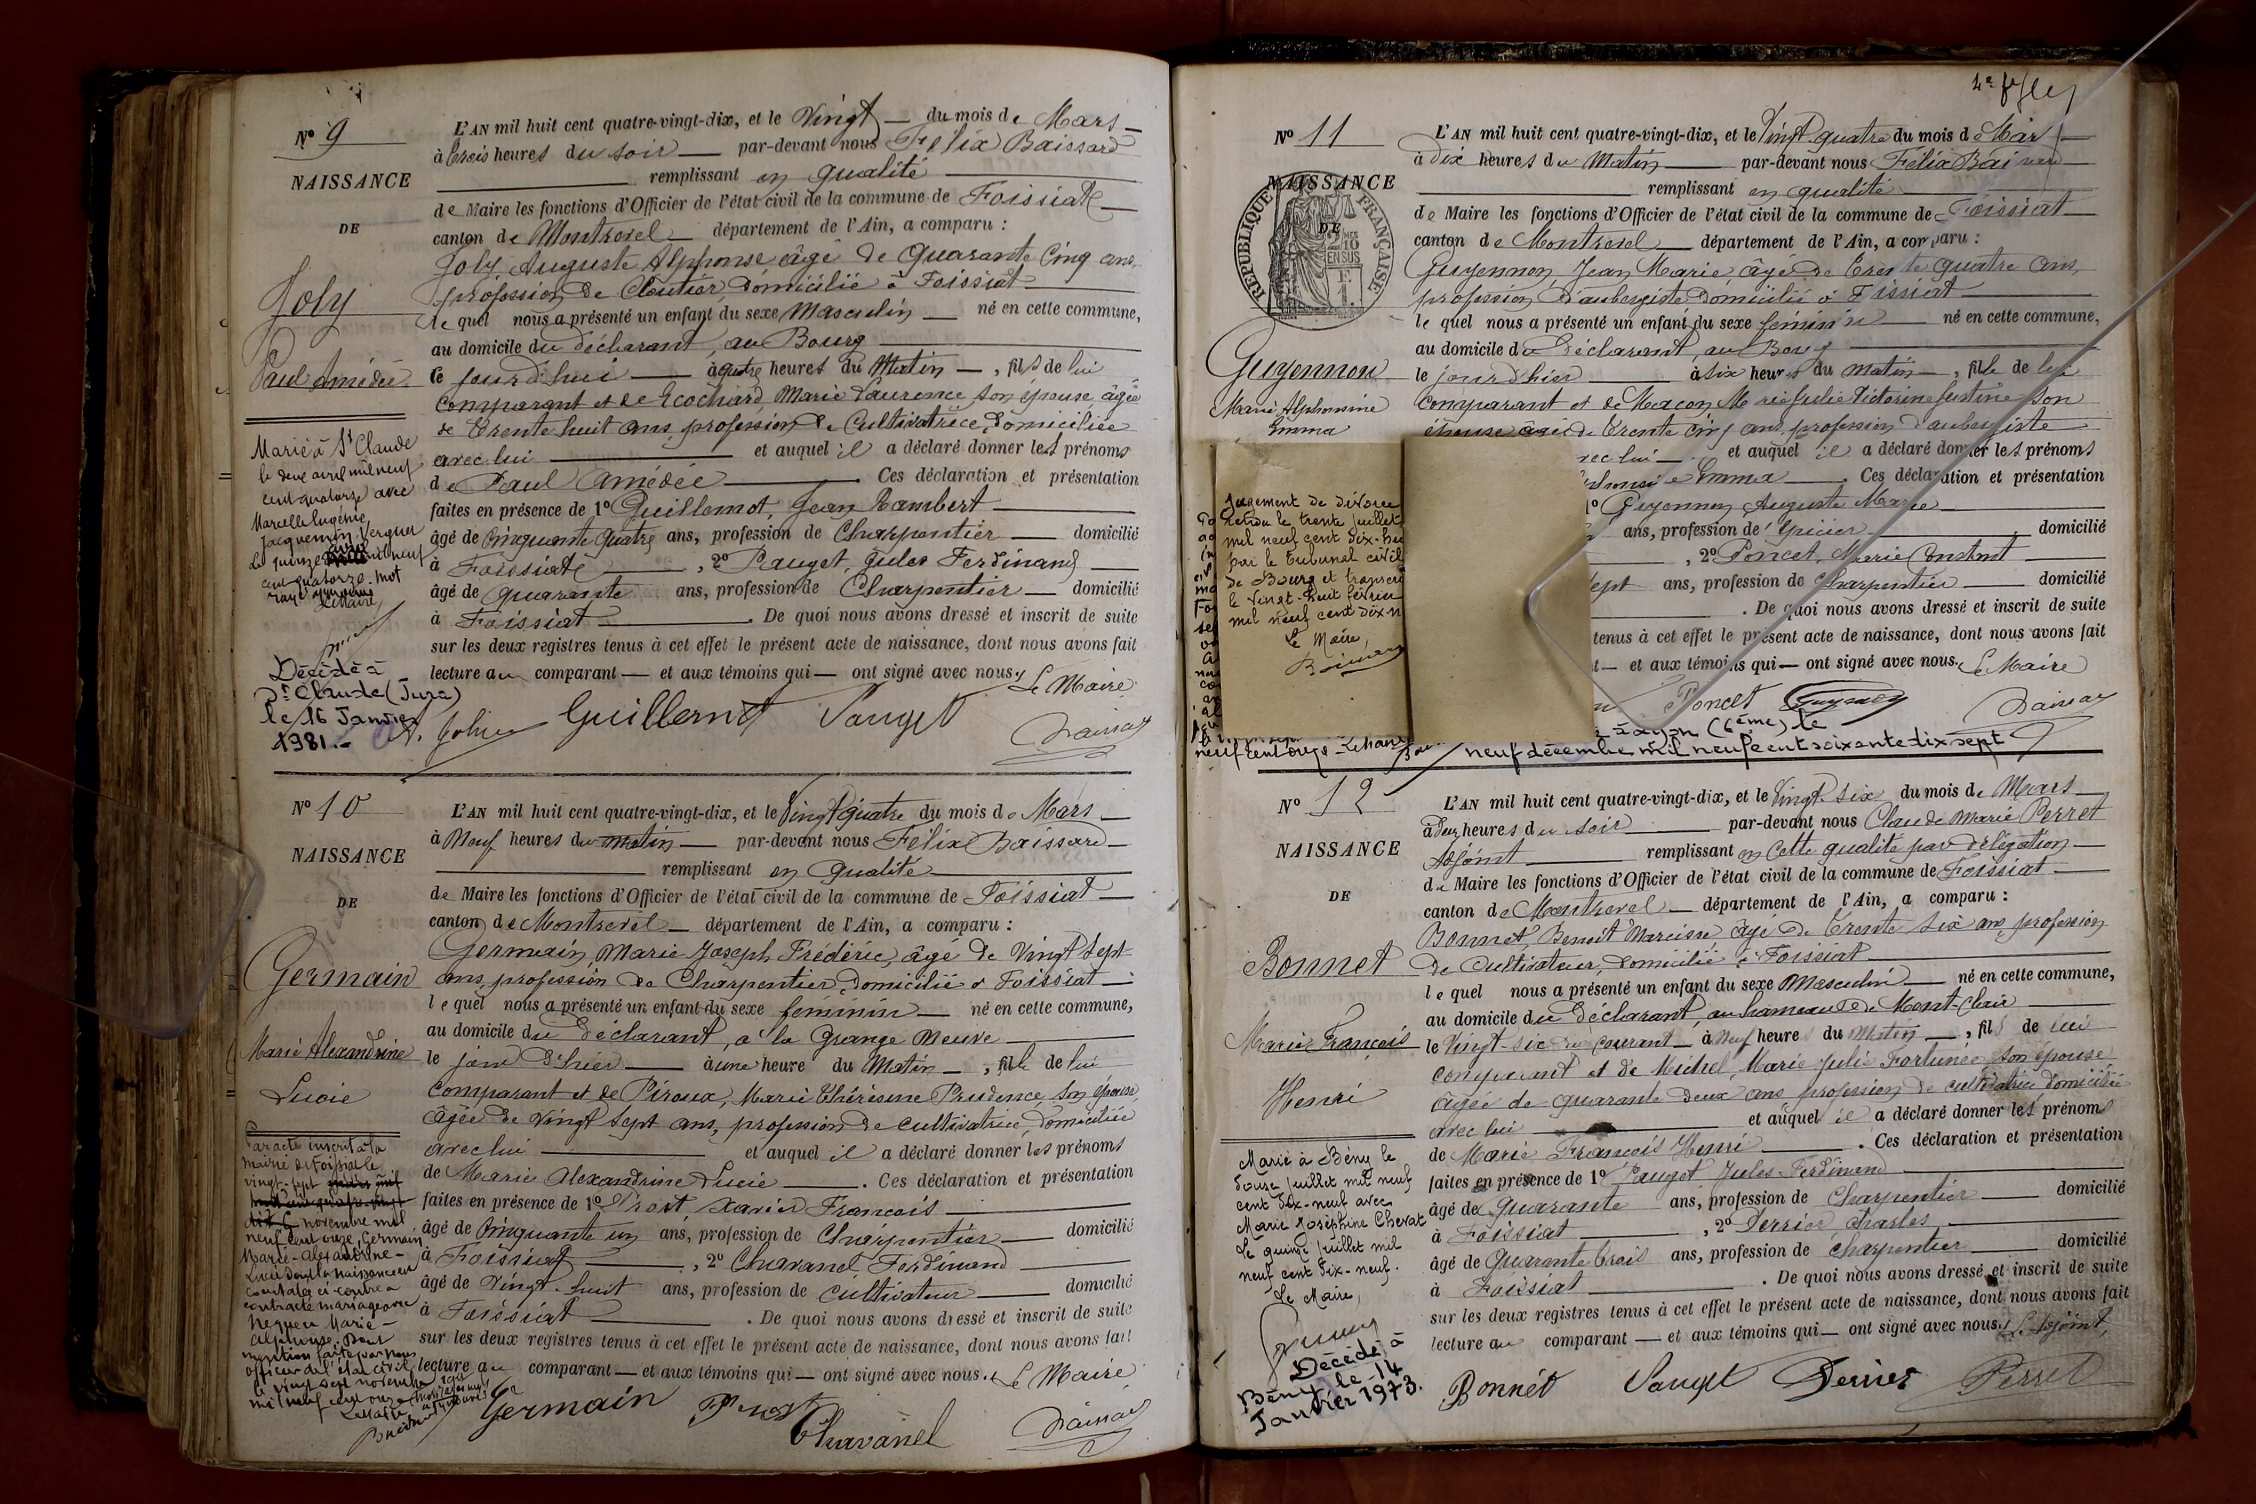 Nº 9
NAISSANCE
DE
Joly
Paul Amédée
Marié à St Claude
le deux avril mil neuf
cent quatorze avec
Marcelle Eugénie
Jacquemin Verguet
Le quinze avril mil neuf
cent quatorze. mot
rayé
Le Maire
Décédé à
St Claude (Jura)
le 16 Janvier
1981.-
L'AN mil huit cent quatre-vingt-dix, et le Vingt du mois de Mars
à trois heures du soir par-devant nous Félix Baissard
remplissant en qualité
de Maire les fonctions d'Officier de l'état civil de la commune de Foissiat
canton de Montrevel département de l'Ain, a comparu :
Joly Auguste Alphonse âgé de Quarante Cinq ans,
profession de Cloutier, domicilié à Foissiat
le quel nous a présenté un enfant du sexe Masculin né en cette commune,
au domicile du déclarant, au Bourg
le jourd'hui à quatre heures du Matin, fils de lui
Comparant et de Ecochard, Marie Laurence son épouse, âgée
de trente huit ans, profession de Cultivatrice, domiciliée
avec lui et auquel il a déclaré donner les prénoms
de Paul Amédée. Ces déclaration et présentation
faites en présence de 1º Guillemot, Jean Lambert
âgé de Cinquante quatre ans, profession de Charpentier domicilié
à Foissiat, 2º Pauget, Jules Ferdinand
âgé de quarante ans, profession de Charpentier domicilié
à Foissiat. De quoi nous avons dressé et inscrit de suite
sur les deux registres tenus à cet effet le présent acte de naissance, dont nous avons fait
lecture au comparant et aux témoins qui ont signé avec nous. Le Maire
Guillemot Pauget
Nº 10
NAISSANCE
DE
Germain
Marie Alexandrine
Lucie
Par acte inscrit à la
mairie de Foissiat le
vingt-sept
novembre mil
neuf cent onze, Germain
Marie-Alexandrine-
Lucie dont la naissance est
constatée ci-contre a
contracté mariage avec
Marie-
Alphonse. Dont
mention faite par nous
officier de l'état civil
le vingt sept novembre
mil neuf cent onze
Le Maire
L'AN mil huit cent quatre-vingt-dix, et le Vingt quatre du mois de Mars
à Neuf heures du matin par-devant nous Félix Baissard
remplissant en qualité
de Maire les fonctions d'Officier de l'état civil de la commune de Foissiat
canton de Montrevel département de l'Ain, a comparu :
Germain, Marie Joseph Frédéric, âgé de Vingt sept
ans, profession de Charpentier, domicilié à Foissiat
le quel nous a présenté un enfant du sexe féminin né en cette commune,
au domicile du déclarant, à la Grange Neuve
le jour d'hier à une heure du Matin, fille de lui
comparant et de Piroux, Marie Thérèse Prudence, son épouse,
âgée de Vingt sept ans, profession de cultivatrice, domiciliée
avec lui et auquel il a déclaré donner les prénoms
de Marie Alexandrine Lucie. Ces déclaration et présentation
faites en présence de 1º Prost Xavier François
âgé de Cinquante un ans, profession de Charpentier domicilié
à Foissiat, 2º Chavanel Ferdinand
âgé de Vingt huit ans, profession de Cultivateur domicilié
à Foissiat. De quoi nous avons dressé et inscrit de suite
sur les deux registres tenus à cet effet le présent acte de naissance, dont nous avons fait
lecture au comparant et aux témoins qui ont signé avec nous. Le Maire
Germain Prost
Chavanel
Nº 11
NAISSANCE
DE
RÉPUBLIQUE FRANÇAISE
Guyennon
Marie Alphonsine
Emma
Jugement de divorce
rendu le trente juillet
mil neuf cent dix-
par le Tribunal civil
de Bourg et
le vingt-huit février
mil neuf cent dix-n
Le Maire,
L'AN mil huit cent quatre-vingt-dix, et le Vingt quatre du mois de Mars
à Dix heures du Matin par-devant nous Félix Baissard
remplissant en qualité
de Maire les fonctions d'Officier de l'état civil de la commune de Foissiat
canton de Montrevel département de l'Ain, a comparu :
Guyennon, Jean Marie âgé de trente quatre ans,
profession d'aubergiste domicilié à Foissiat
le quel nous a présenté un enfant du sexe féminin né en cette commune,
au domicile du Déclarant, au Bourg
le jour d'hier à six heures du matin, fille de lui
comparant et de Macon Marie Julie Victorine Justine son
épouse âgée de trente cinq ans, profession d'aubergiste
avec lui et auquel il a déclaré donner les prénoms
Emma. Ces déclaration et présentation
1º Guyennon Auguste Marie
ans, profession de Epicier domicilié
, 2º Poncet, Marie Constant
sept ans, profession de Charpentier domicilié
. De quoi nous avons dressé et inscrit de suite
tenus à cet effet le présent acte de naissance, dont nous avons fait
et aux témoins qui ont signé avec nous. Le Maire
Poncet
à Lyon (6ème) le
neuf décembre mil neuf cent soixante dix sept
Nº 12
NAISSANCE
DE
Bonnet
Marie François
Henri
Marié à Bény le
douze juillet mil neuf
cent dix-neuf avec
Marie Joséphine Chevat
Le quinze juillet mil
neuf cent dix-neuf.
Le Maire,
Décédé à
Bény le 14
Janvier 1973.
L'AN mil huit cent quatre-vingt-dix, et le Vingt six du mois de Mars
à Deux heures du soir par-devant nous Claude Marie Perret
Adjoint remplissant en cette qualité par délégation
du Maire les fonctions d'Officier de l'état civil de la commune de Foissiat
canton de Montrevel département de l'Ain, a comparu :
Bonnet, Benoit Narcisse âgé de trente six ans, profession
de Cultivateur, domicilié à Foissiat
le quel nous a présenté un enfant du sexe Masculin né en cette commune,
au domicile du déclarant, au hameau de Mont-Clair
le Vingt-six du courant à Neuf heures du Matin, fils de lui
comparant et de Michel, Marie Julie Fortunée son épouse
âgée de quarante deux ans profession de cultivatrice domiciliée
avec lui et auquel il a déclaré donner les prénoms
de Marie François Henri. Ces déclaration et présentation
faites en présence de 1º Pauget Jules Ferdinand
âgé de Quarante ans, profession de Charpentier domicilié
à Foissiat, 2º Perrier Charles
âgé de Quarante trois ans, profession de charpentier domicilié
à Foissiat. De quoi nous avons dressé et inscrit de suite
sur les deux registres tenus à cet effet le présent acte de naissance, dont nous avons fait
lecture au comparant et aux témoins qui ont signé avec nous. L'Adjoint,
Bonnet Pauget Perrier Perret